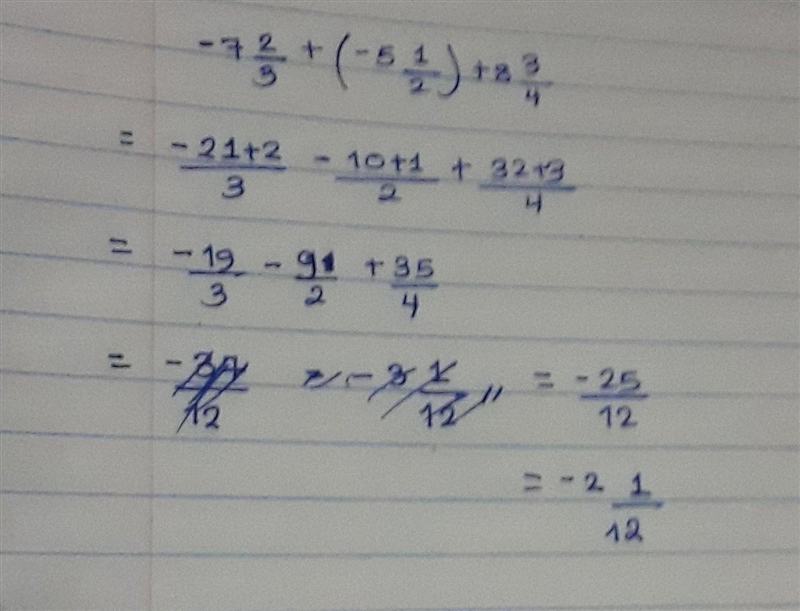 -7 2/3 + (-5 1/2) + 8 3/4
= -21+2/3 - 10+1/2 + 32+3/4
= -19/3 - 9/2 + 35/4
= = -25/12
= -2 1/12